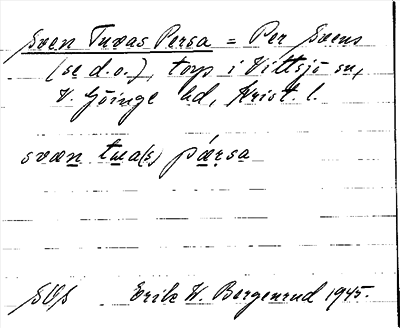 Sven Tuvas Persa = Per Svens
(se d.o.), torp i Vittsjö sn,
V. Göinge hd, Krist. l.
svæn tua(s) pærsa
SOS Erik W. Bergenrud 1945.